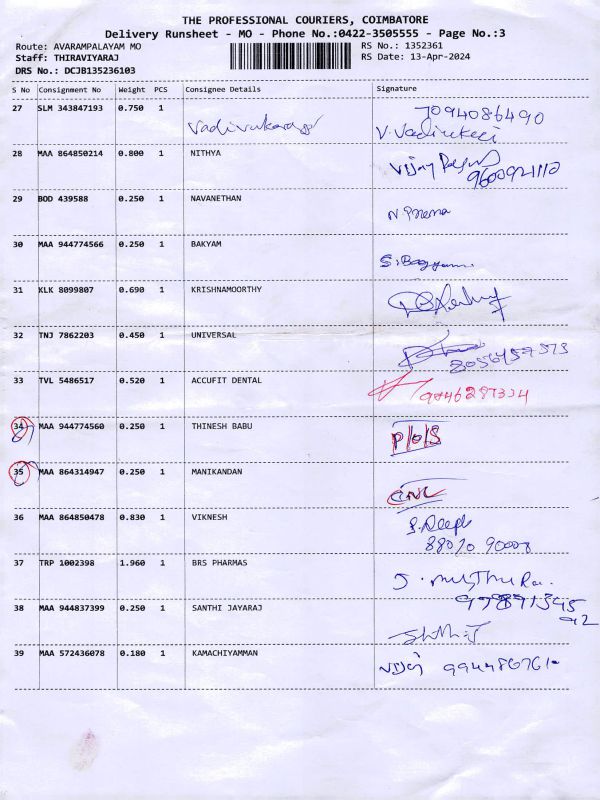 THE PROFESSIONAL COURIERS, COIMBATORE
Delivery Runsheet - MO - Phone No.:0422-3505555 - Page No.:3
Route: AVARAMPALAYAM MO RS No.: 1352361
Staff: THIRAVIYARAJ RS Date: 13-Apr-2024
DRS No.: DCJB135236103
S No Consignment No Weight PCS Consignee Details Signature
27 SLM 343847193 0.750 1 7094086490
28 MAA 864850214 0.800 1 NITHYA 9600921110
29 BOD 439588 0.250 1 NAVANETHAN N Prema
30 MAA 944774566 0.250 1 BAKYAM
31 KLK 8099807 0.690 1 KRISHNAMOORTHY
32 TNJ 7862203 0.450 1 UNIVERSAL
33 TVL 5486517 0.520 1 ACCUFIT DENTAL
34 MAA 944774560 0.250 1 THINESH BABU
35 MAA 864314947 0.250 1 MANIKANDAN CNL
36 MAA 864850478 0.830 1 VIKNESH
37 TRP 1002398 1.960 1 BRS PHARMAS
38 MAA 944837399 0.250 1 SANTHI JAYARAJ
39 MAA 572436078 0.180 1 KAMACHIYAMMAN